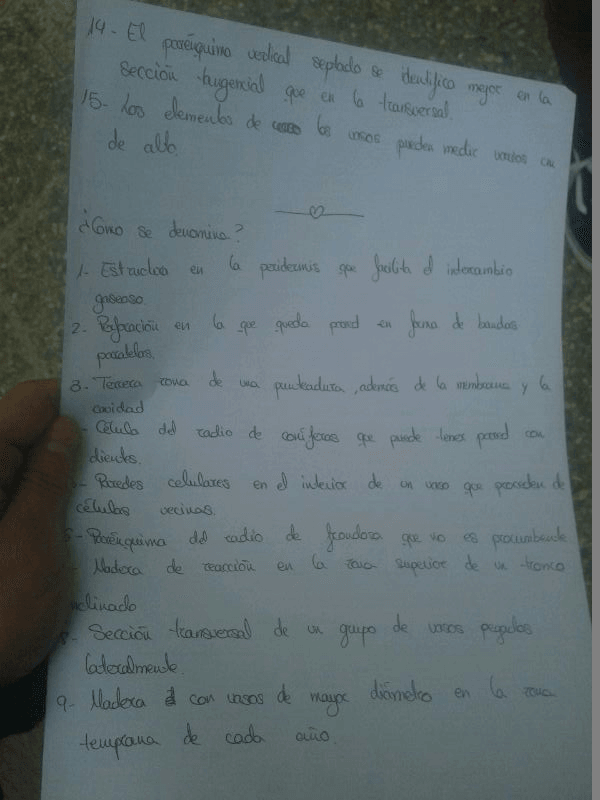 14- El parénquima vertical septado se identifica mejor en la
sección tangencial que en la transversal.
15- Los elementos de los vasos pueden medir varios cm
de alto.
¿Cómo se denomina?
1- Estructura en la peridermis que facilita el intercambio
gaseoso.
2- Perforación en la que queda pared en forma de bandas
paralelas.
3- Tercera zona de una punteadura, además de la membrana y la
cavidad
- Célula del radio de coníferas que puede tener pared con
dientes.
- Paredes celulares en el interior de un vaso que proceden de
células vecinas.
6- Parénquima del radio de frondosa que no es procumbente
- Madera de reacción en la zona superior de un tronco
inclinado
8- Sección transversal de un grupo de vasos pegados
lateralmente.
9- Madera con vasos de mayor diámetro en la zona
temprana de cada año.